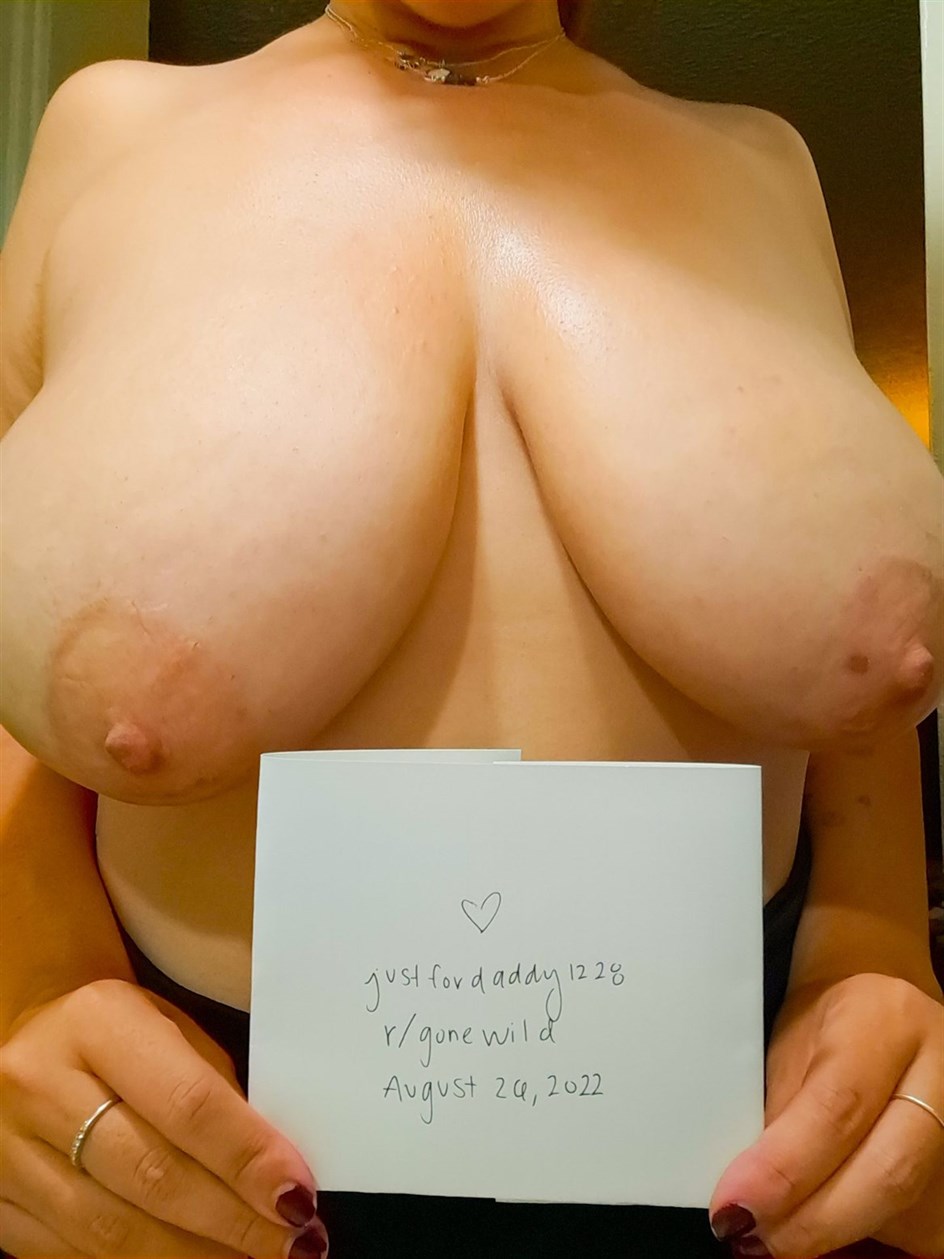 ♡
justfordaddy1228
r/gonewild
August 26, 2022